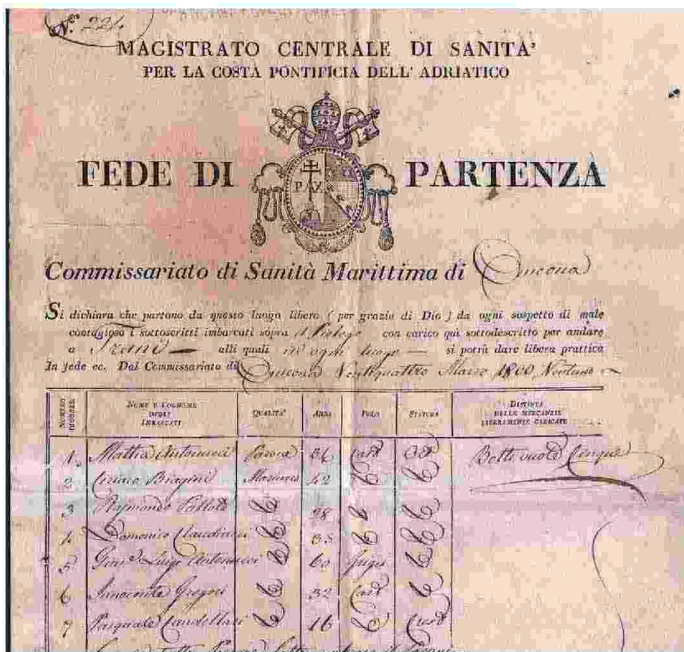 N. 224
MAGISTRATO CENTRALE DI SANITA'
PER LA COSTA PONTIFICIA DELL' ADRIATICO
FEDE DI PARTENZA
PAX
Commissariato di Sanità Marittima di Ancona
Si dichiara che partono da questo luogo libero (per grazia di Dio) da ogni sospetto di male
contagioso i sottoscritti imbarcati sopra il Pielego con carico quì sottodescritto per andare
a Trani alli quali in ogni luogo si potrà dare libera prattica
In fede ec. Dal Commissariato di Ancona Ventiquattro Marzo
NUMERO NOME E COGNOME DEGLI IMBARCATI QUALITA' ANNI PELO STATURA DISTINTA DELLE MERCANZIE LIBERAMENTE CARICATE
1 Mattia Antonucci 36 Cast Ord Botti vuote Cinque
2 Biagini Marinaro 42
3 Raymondo 28
4 Domenico Claudinucci 35
5 Luigi Antonucci 60 Grigio
6 Innocente Gregori 32 Cast
7 Pasquale Candellari 16